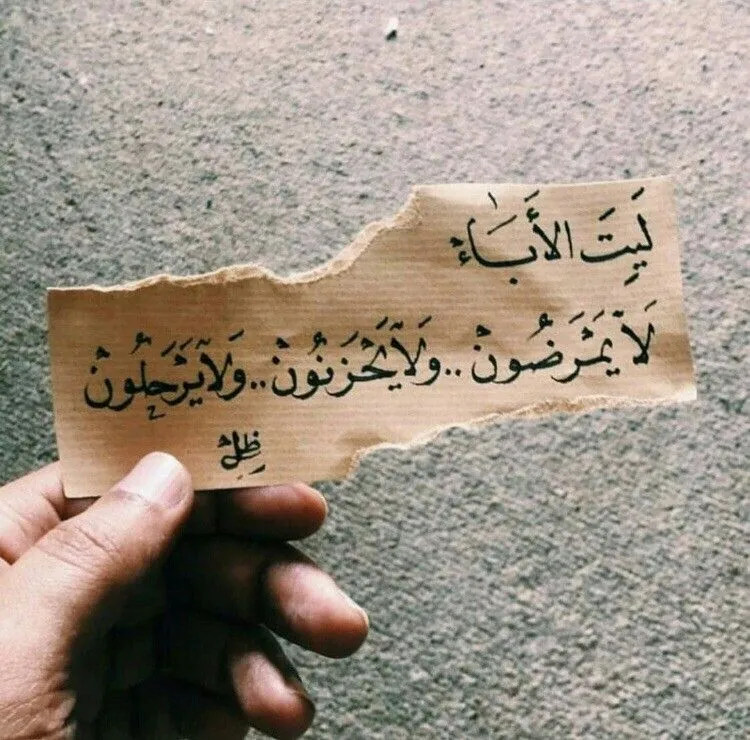 لَيتَ الأَبَاء
لَا يَمْرَضُونْ .. ولَا يَحْزَنُونْ .. وَلَا يَرْحَلُونْ
ظِلّ